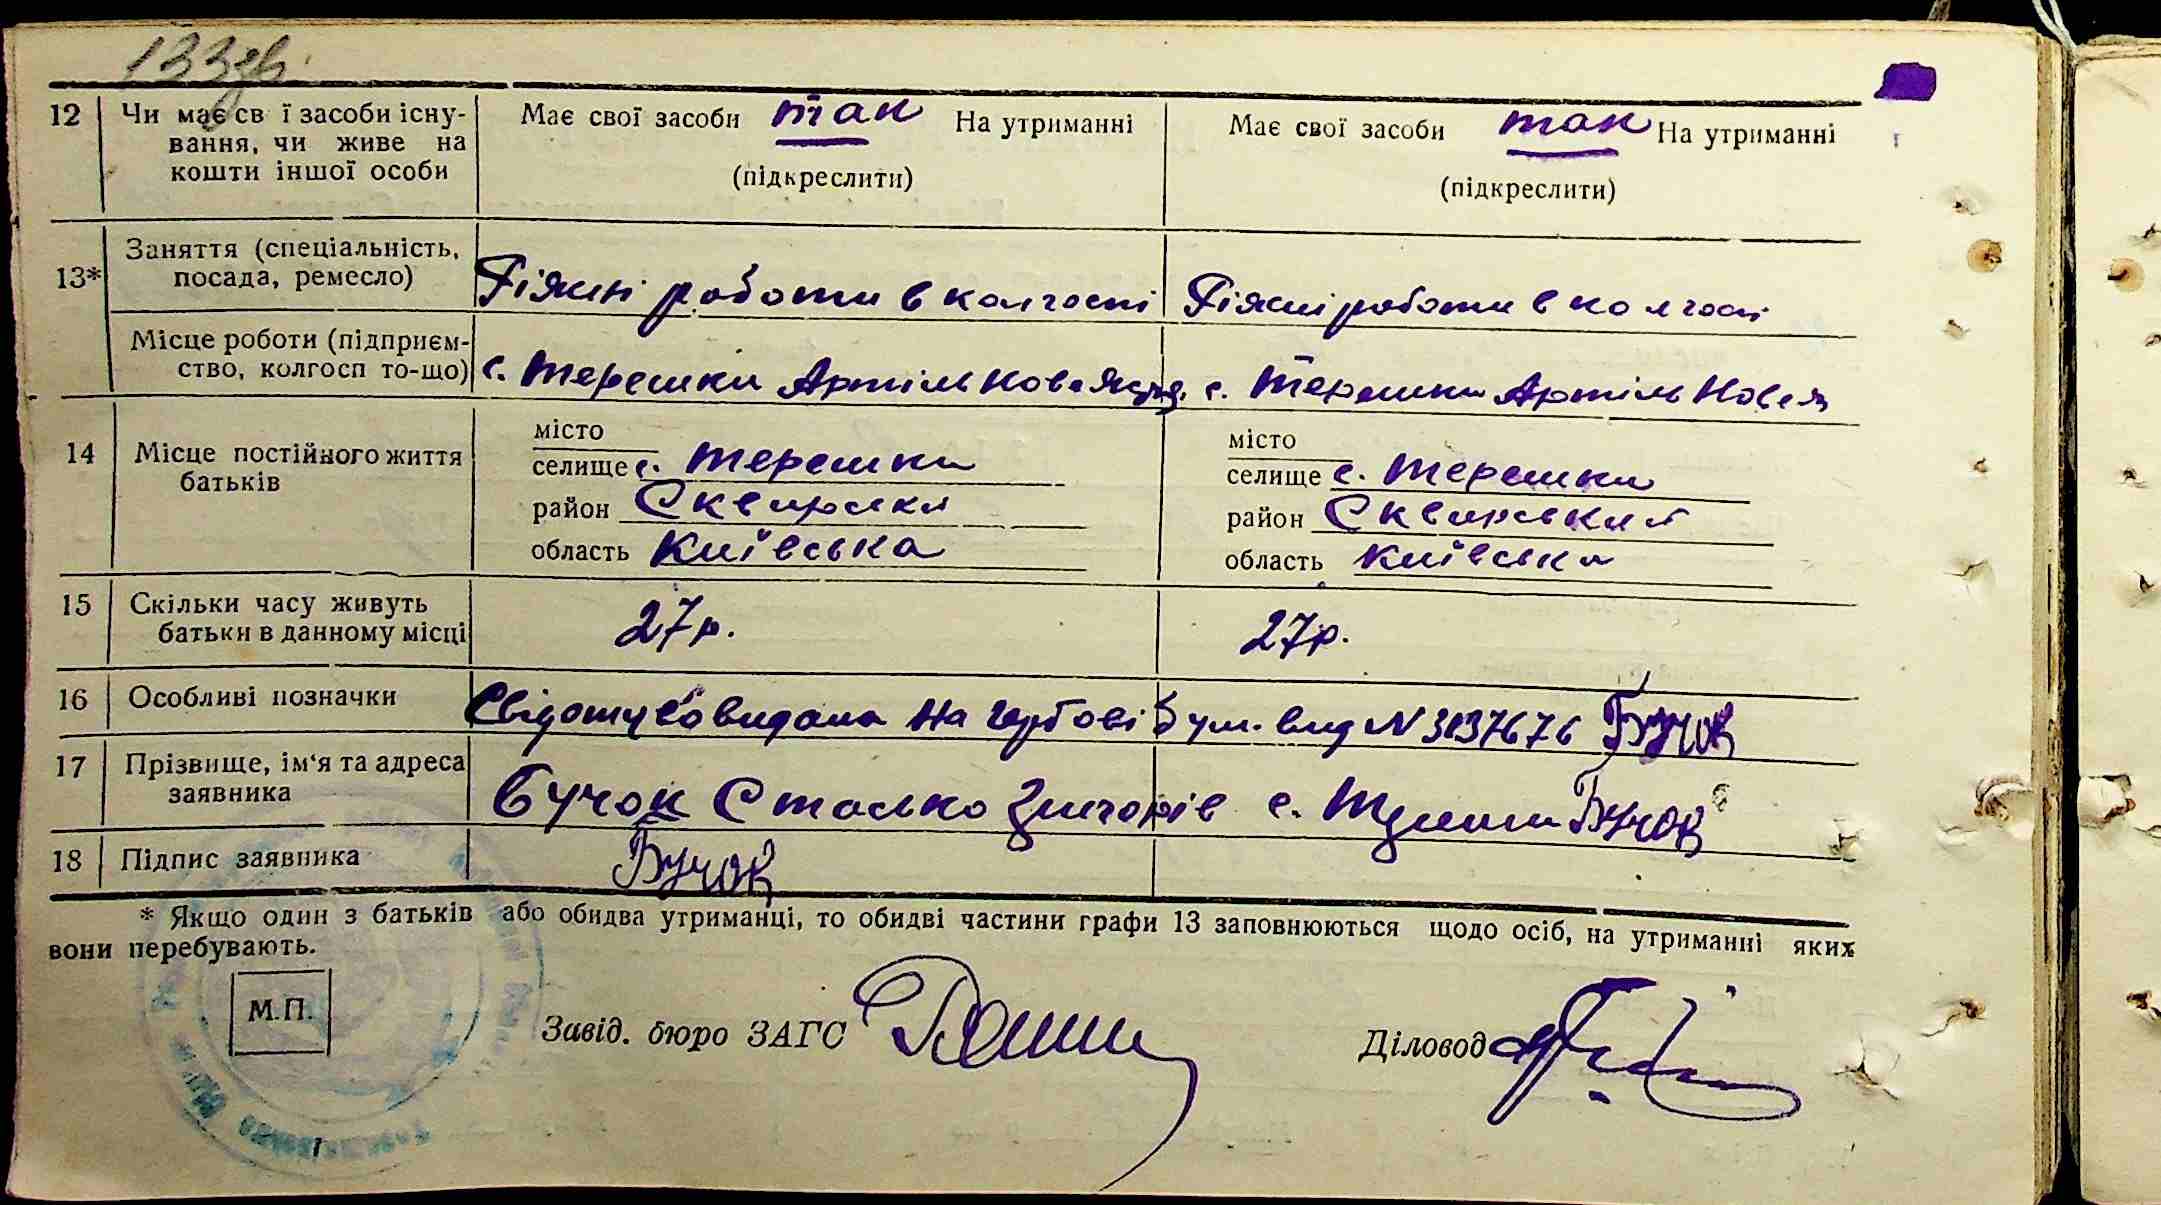 133зв.
12 Чи має св ї засоби існу- Має свої засоби так На утриманні Має свої засоби так На утриманні
вання, чи живе на
кошти іншої особи (підкреслити) (підкреслити)
13* Заняття (спеціальність,
посада, ремесло) Ріжні роботи в колгоспі Ріжні роботи в колгосп
Місце роботи (підприєм-
ство, колгосп то-що) с. Терешки Артіль Нове с. Терешки Артіль Нове
14 Місце постійного життя місто місто
батьків селище с. Терешки селище с. Терешки
район Сквирський район Сквирський
область Київська область Київська
15 Скільки часу живуть
батьки в данному місці 27р. 27р.
16 Особливі позначки видана на гербові бум. вид N Бучок
17 Прізвище, ім'я та адреса
заявника Бучок Стасько с. Бучок
18 Підпис заявника Бучок
* Якщо один з батьків або обидва утриманці, то обидві частини графи 13 заповнюються щодо осіб, на утриманні яких
вони перебувають.
М.П.
Завід. бюро ЗАГС Діловод